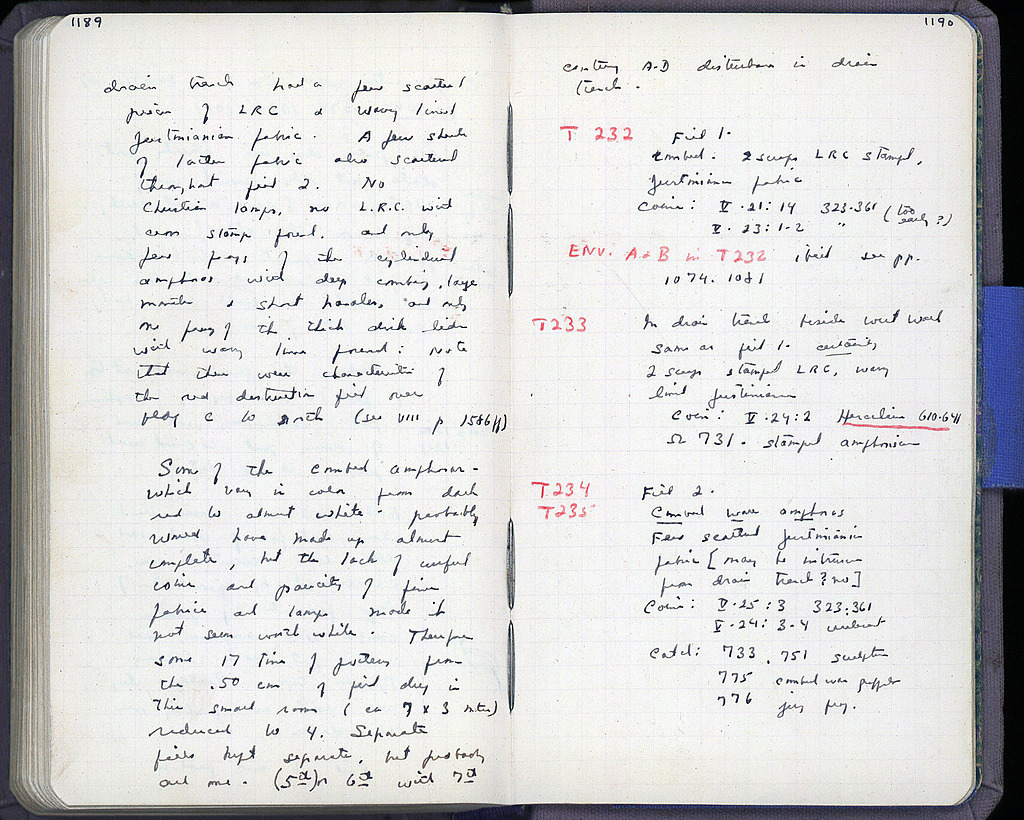 1189
drain trench had a few scattered
pieces of LRC & wavy lined
Justinianian fabric. A few sherds
of latter fabric also scattered
throughout fill 2. No
Christian lamps, no L.R.C. with
cross stamp found, and only
few frags of the cylindrical
amphoras with deep combing, large
mouths & short handles, and only
no frag of the thick drik
with wavy lines found: note
that these were characteristic of
the red destruction fill over
bldg C to north (see VIII p 1586 ff)
Some of the combed amphoras -
which vary in color from dark
red to almost white - probably
would have made up almost
complete, but the lack of useful
coins and paucity of fine
fabrics and lamps made it
not seem worth while. Therefore
some 17 tins of pottery from
the .50 cm of fill dug in
this small room (ca 7 x 3 meters)
reduced to 4. Separate
fills kept separate, but probably
all one. (5th) or 6th with 7th
1190
century A.D disturbance in drain
trench.
T 232 Fill 1.
combed. 2 scraps LRC stamped,
Justinian fabric
Coins: V.21:14 323-361 (too early?)
V. 23:1-2 "
ENV. A & B in T232 see pp.
1074. 1081
T233 In drain trench beside west wall
same as fill 1. certainly
2 scraps stamped LRC, wavy
lined Justinian
Coin: V.24:2 Heraclius 610-641
Ω 731. stamped amphoriskos
T234 Fill 2.
T235 Combed ware amphoras
Few scattered Justinianian
fabric [may be intrusion
from drain trench? no]
Coins: V.25:3 323-361
V.24: 3-4
Catd: 733, 751 sculpture
775 combed ware
776 jug frg.